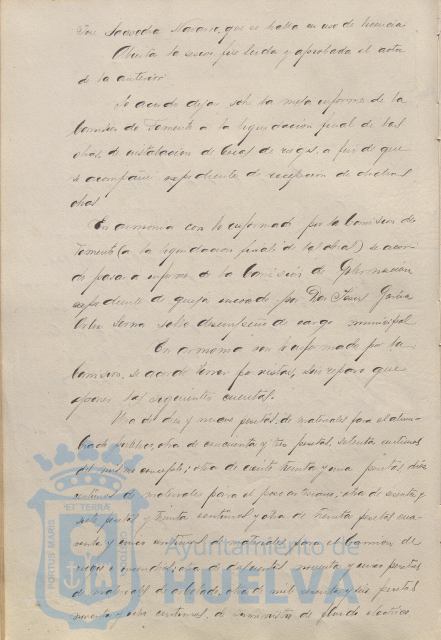 José Saavedra Navarro, que se halla en uso de licencia
Abierta la sesión fue leida y aprobada el acta
de la anterior
Se acuerda dejar sobre la mesa informe de la
Comisión de Fomento a la liquidación final de las
obras de instalación de bocas de riego, a fin de que
se acompañe expediente de recepción de dichas
obras
En armonia con lo informado por la Comisión de
Fomento (a la liquidación final de las obras) se acor
do pasar a informe de la Comisión de Gobernación
expediente de queja incoado por Don José García
sobre desempeño de cargo municipal
En armonia con lo informado por la
Comisión, se acuerda sin reparo que
oponer las siguientes cuentas.
Una de diez y nueve pesetas, de materiales para el alum
brado público, otra de cincuenta y tres pesetas, setenta centimos
del mismo concepto; otra de ciento treinta y una pesetas diez
centimos de materiales para el otra de
siete pesetas y treinta centimos y otra de treinta pesetas
centimos de materiales para el camión de
riegos e incendios; otra de pesetas
de materiales de otra de mil pesetas
centimos, de suministro de fluido electrico
ET TERRÆ
PORTUS MARIS
CUSTODIA
Ayuntamiento de
HUELVA